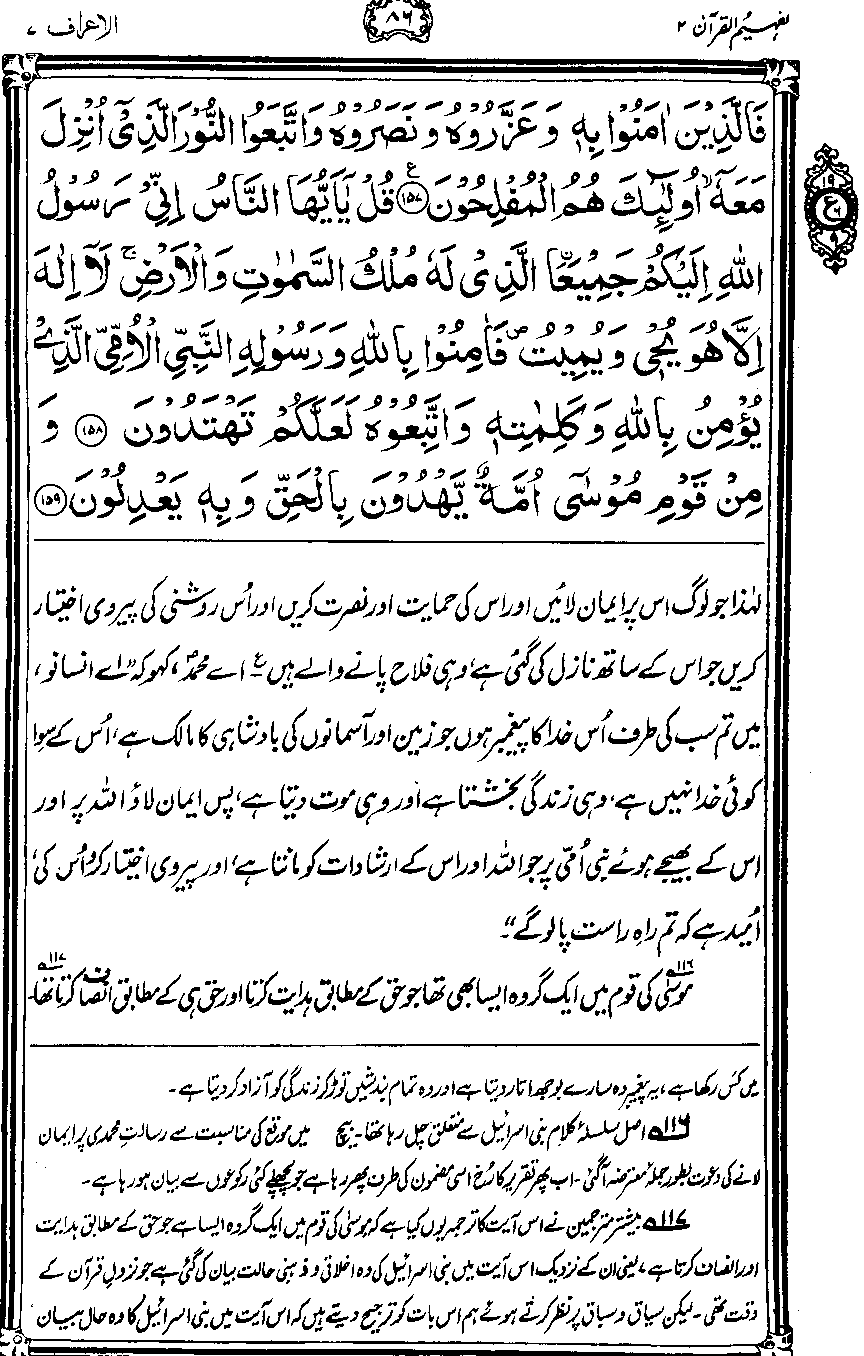 تفہیم القرآن ۲
۸۶
الاعراف ۷
فَالَّذِيْنَ اٰمَنُوْا بِهٖ وَعَزَّرُوْهُ وَنَصَرُوْهُ وَاتَّبَعُوا النُّوْرَ الَّذِيْٓ اُنْزِلَ
مَعَهٗٓ ۙ اُولٰٓئِكَ هُمُ الْمُفْلِحُوْنَ ﴿۱۵۷﴾ ع قُلْ يٰٓاَيُّهَا النَّاسُ اِنِّيْ رَسُوْلُ
اللّٰهِ اِلَيْكُمْ جَمِيْعَا ۨ الَّذِيْ لَهٗ مُلْكُ السَّمٰوٰتِ وَالْاَرْضِ ۚ لَآ اِلٰهَ
اِلَّا هُوَ يُحْيٖ وَيُمِيْتُ ۪ فَاٰمِنُوْا بِاللّٰهِ وَرَسُوْلِهِ النَّبِيِّ الْاُمِّيِّ الَّذِيْ
يُؤْمِنُ بِاللّٰهِ وَكَلِمٰتِهٖ وَاتَّبِعُوْهُ لَعَلَّكُمْ تَهْتَدُوْنَ ﴿۱۵۸﴾ وَ
مِنْ قَوْمِ مُوْسٰٓى اُمَّةٌ يَّهْدُوْنَ بِالْحَقِّ وَبِهٖ يَعْدِلُوْنَ ﴿۱۵۹﴾
۱۹
ع
۹
لہٰذا جو لوگ اس پر ایمان لائیں اور اس کی حمایت اور نصرت کریں اور اُس روشنی کی پیروی اختیار
کریں جو اس کے ساتھ نازل کی گئی ہے، وہی فلاح پانے والے ہیں ع اے محمدؐ، کہو کہ ”اے انسانو،
میں تم سب کی طرف اُس خدا کا پیغمبر ہوں جو زمین اور آسمانوں کی بادشاہی کا مالک ہے، اُس کے سوا
کوئی خدا نہیں ہے، وہی زندگی بخشتا ہے اور وہی موت دیتا ہے، پس ایمان لاؤ اللہ پر اور
اس کے بھیجے ہوئے نبی اُمّی پر جو اللہ اور اس کے ارشادات کو مانتا ہے، اور پیروی اختیار کرو اُس کی،
اُمید ہے کہ تم راہِ راست پا لو گے“۔
موسٰی ۱۱۶ کی قوم میں ایک گروہ ایسا بھی تھا جو حق کے مطابق ہدایت کرتا اور حق ہی کے مطابق انصاف ۱۱۷ کرتا تھا۔
میں کس رکھا ہے، یہ پیغمبر وہ سارے بوجھ اتار دیتا ہے اور وہ تمام بندشیں توڑ کر زندگی کو آزاد کر دیتا ہے۔
۱۱۶ اصل سلسلۂ کلام بنی اسرائیل سے متعلق چل رہا تھا۔ بیچ میں موقع کی مناسبت سے رسالتِ محمدی پر ایمان
لانے کی دعوت بطور جملۂ معترضہ آگئی۔ اب پھر تقریر کا رُخ اسی مضمون کی طرف پھر رہا ہے جو پچھلے کئی رکوعوں سے بیان ہو رہا ہے۔
۱۱۷ بیشتر مترجمین نے اس آیت کا ترجمہ یوں کیا ہے کہ موسٰی کی قوم میں ایک گروہ ایسا ہے جو حق کے مطابق ہدایت
اور انصاف کرتا ہے، یعنی ان کے نزدیک اس آیت میں بنی اسرائیل کی وہ اخلاقی و ذہنی حالت بیان کی گئی ہے جو نزولِ قرآن کے
وقت تھی۔ لیکن سیاق و سباق پر نظر کرتے ہوئے ہم اس بات کو ترجیح دیتے ہیں کہ اس آیت میں بنی اسرائیل کا وہ حال بیان